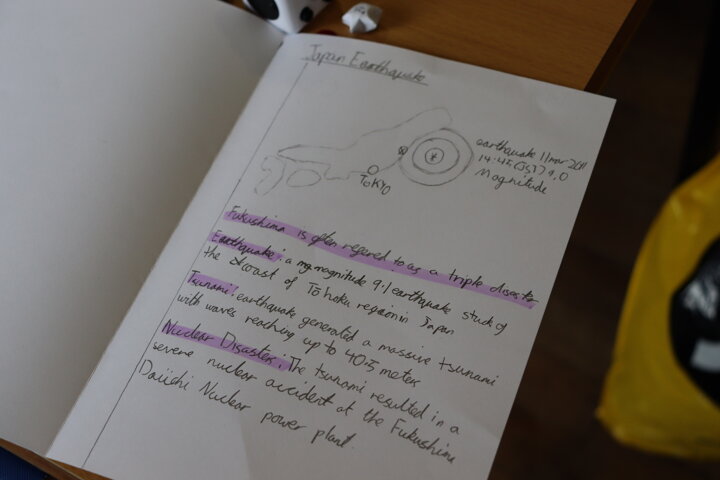 Japan Earthquake
earthquake 11 mar 2011
14:45 (JST) 9.0
Magnitude
TOKYO
Fukushima is often refered to as a triple disester
Earthquake: a mg magnitude 9.1 earthquake stuck of
the coast of Tōhoku region in Japan
Tsunami: earthquake generated a massive tsunami
with waves reaching up to 40.5 meters
Nuclear Disaster: The tsunami resulted in a
severe nuclear accident at the Fukushima
Daiichi Nuclear power plant.